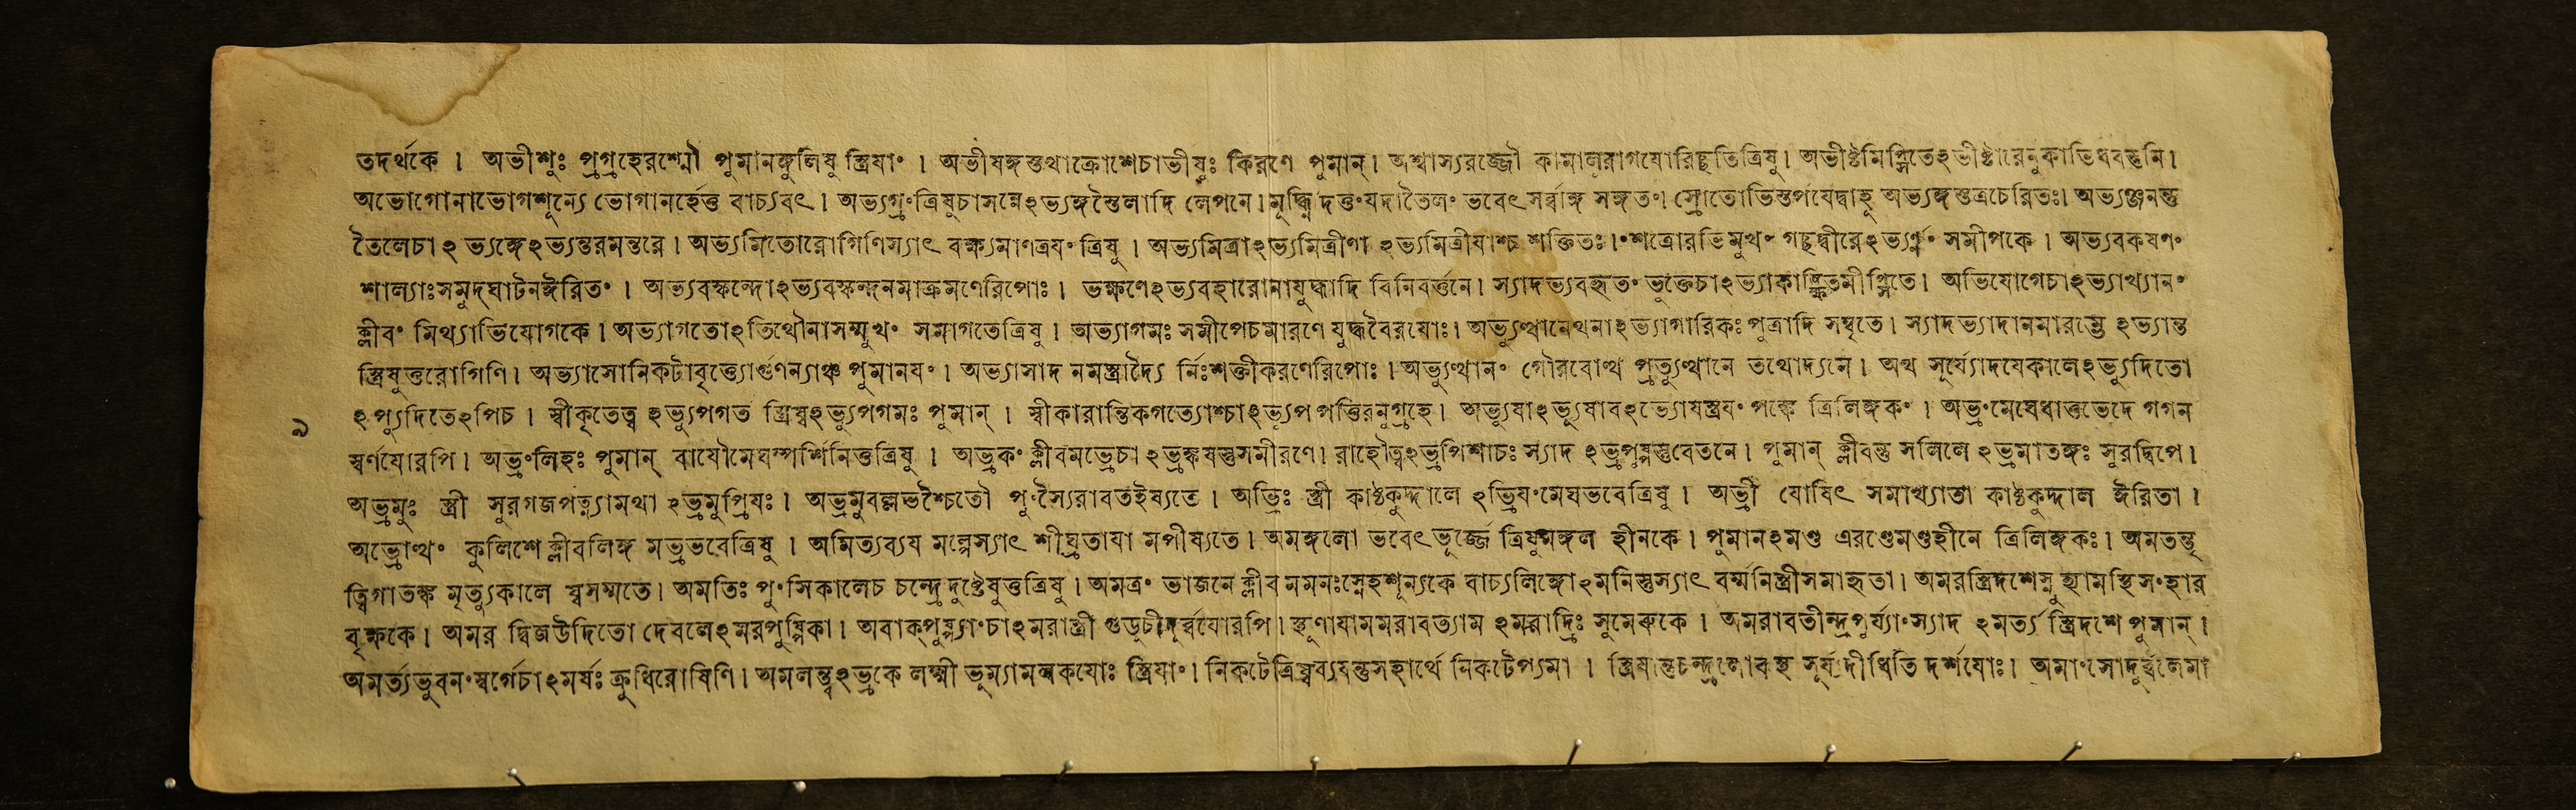 তদর্থকে । অভীশুঃ প্রগ্রহেরশ্মৌ পুমানঙ্গুলিষু স্ত্রিযাং । অভীষঙ্গস্তথাক্রোশেচাভীষুঃ কিরণে পুমান্। অশ্বাস্যরজ্জৌ কামানুরাগযোরিচ্ছতিত্রিষু। অভীষ্টমিপ্সিতেঽভীষ্টারেনুকাভিধবস্তুনি।
অভোগোনাভোগশূন্যে ভোগানর্হেত্তু বাচ্যবৎ। অভ্যগ্রংত্রিষুচাসন্নেঽভ্যঙ্গস্তৈলাদি লেপনে। মূর্দ্ধ্নিদত্তংযদাতৈলং ভবেৎসর্ব্বাঙ্গ সঙ্গতং। স্রোতোভিস্তর্পযেদ্বাহূ অভ্যঙ্গস্তত্রচেরিতঃ। অভ্যঞ্জনন্তু
তৈলেচাঽ ভ্যঙ্গেঽভ্যন্তরমন্তরে। অভ্যমিতোরোগিণিস্যাৎ বক্ষ্যমাণত্রযং ত্রিষু । অভ্যমিত্রাঽভ্যমিত্রীণা ঽভ্যমিত্রীযাশ্চ শক্তিতঃ। শত্রোরভিমুখং গচ্ছদ্বীরেঽভ্যর্ণং সমীপকে । অভ্যবকষণং
শাল্যাঃসমুদ্ঘাটনঈরিতং । অভ্যবস্কন্দোঽভ্যবস্কন্দনমাক্রমণেরিপোঃ । ভক্ষণেঽভ্যবহারোনাযুদ্ধাদি বিনিবর্ত্তনে। স্যাদভ্যবহৃতং ভুক্তেচাঽভ্যাকাঙ্ক্ষিতমীপ্সিতে। অভিযোগেচাঽভ্যাখ্যানং
ক্লীবং মিথ্যাভিযোগকে। অভ্যাগতোঽতিথৌনাসম্মুখং সমাগতেত্রিষু । অভ্যাগমঃ সমীপেচমারণে যুদ্ধবৈরযোঃ। অভ্যুত্থানেথনাঽভ্যাগারিকঃ পুত্রাদি সম্বৃতে। স্যাদভ্যাদানমারম্ভে ঽভ্যান্ত
স্ত্রিষুত্তরোগিণি। অভ্যাসোনিকটাবৃত্ত্যোর্গুণন্যাঞ্চ পুমানযং। অভ্যাসাদ নমস্ত্রাদ্যৈ র্নিঃশক্তীকরণেরিপোঃ। অভ্যুত্থানং গৌরবোত্থ প্রত্যুত্থানে তথোদ্যমে। অথ সূর্য্যোদযেকালেঽভ্যুদিতো
ঽপ্যুদিতেঽপিচ । স্বীকৃতেত্ব ঽভ্যুপগত স্ত্রিষ্বঽভ্যুপগমঃ পুমান্ । স্বীকারান্তিকগত্যোশ্চাঽভ্যুপপত্তিরনুগ্রহে। অভ্যুষাঽভ্যূষাবঽভ্যোষস্ত্রযং পক্কে ত্রিলিঙ্গকং । অভ্রংমেঘেধাত্তভেদে গগন
স্বর্ণযোরপি। অভ্রংলিহঃ পুমান্ বাযৌমেঘস্পর্শিনিত্তত্রিষু । অভ্রকং ক্লীবমভ্রেচাঽভ্রঙ্কষস্তুসমীরণে। রাহৌত্বঽভ্রপিশাচঃ স্যাদ ঽভ্রপুষ্পস্তুবেতসে। পুমান্ ক্লীবন্তু সলিলে ঽভ্রমাতঙ্গঃ সুরদ্বিপে।
অভ্রমুঃ স্ত্রী সুরগজপত্ন্যামথা ঽভ্রমুপ্রিযঃ। অভ্রমুবল্লভশ্চৈতৌ পুংস্যৈরাবতইষ্যতে । অভ্রিঃ স্ত্রী কাষ্ঠকুদ্দালে ঽভ্রিযংমেঘভবেত্রিষু । অভ্রী যোষিৎ সমাখ্যাতা কাষ্ঠকুদ্দাল ঈরিতা ।
অভ্রোত্থং কুলিশে ক্লীবলিঙ্গ মভ্রভবেত্রিষু । অমিত্যব্যয মল্পেস্যাৎ শীঘ্রতাযা মপীষ্যতে। অমঙ্গলো ভবেৎভূর্জ্জে ত্রিষুমঙ্গল হীনকে। পুমানঽমণ্ড এরণ্ডেমণ্ডহীনে ত্রিলিঙ্গকঃ। অমতন্তু
ত্রিগাতঙ্ক মৃত্যুকালে স্বসম্মতে। অমতিঃ পুংসিকালেচ চন্দ্রেদুষ্টেষুত্তত্রিষু। অমত্রং ভাজনে ক্লীব মমনঃস্নেহশূন্যকে বাচ্যলিঙ্গোঽমনিস্তুস্যাৎ বর্ম্মনিস্ত্রীসমাহৃতা। অমরস্ত্রিদশেস্নুহ্যামস্থিসংহার
বৃক্ষকে। অমর দ্বিজউদিতো দেবলেঽমরপুষ্পিকা। অবাক্পুষ্প্যাংচাঽমরাস্ত্রী গুড়ূচীদূর্ব্বযোরপি। স্থূণাযামমরাবত্যাম ঽমরাদ্রিঃ সুমেরুকে । অমরাবতীন্দ্রপুর্য্যাংস্যাদ ঽমর্ত্য স্ত্রিদশে পুমান্।
অমর্ত্যভুবনংস্বর্গেচাঽমর্ষঃ ক্রুধিরোষিণি। অমলন্ত্বঽভ্রকে লক্ষ্মী ভূম্যামলকযোঃ স্ত্রিযাং। নিকটেত্রিষ্বব্যযন্তুসহার্থে নিকটেপ্যমা । স্ত্রিযান্তুচন্দ্র সূর্য্যদীধিতি দর্শযোঃ। অমাংসোদুর্ব্বলেমা
৯